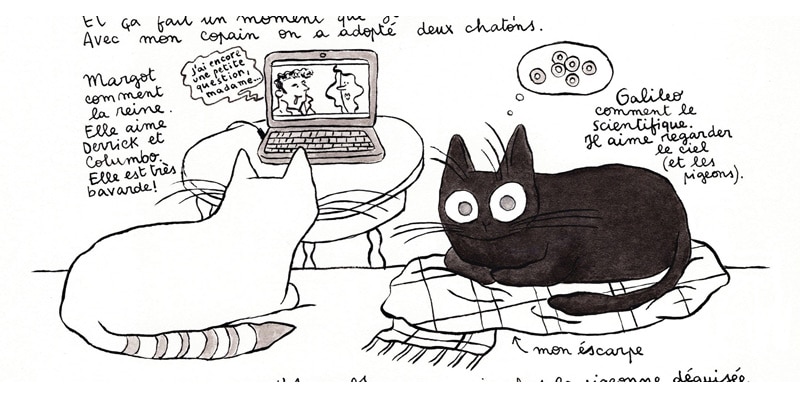 Et ça fait un moment que
Avec mon copain on a adopté deux chatons.
Margot
comment
la reine.
Elle aime
Derrick et
Columbo.
Elle est très
bavarde!
j'ai encore
une petite
question,
madame...
Galileo
comment le
scientifique.
Il aime regarder
le ciel
(et les
pigeons).
mon éscarpe
la pigeonne déguisée.